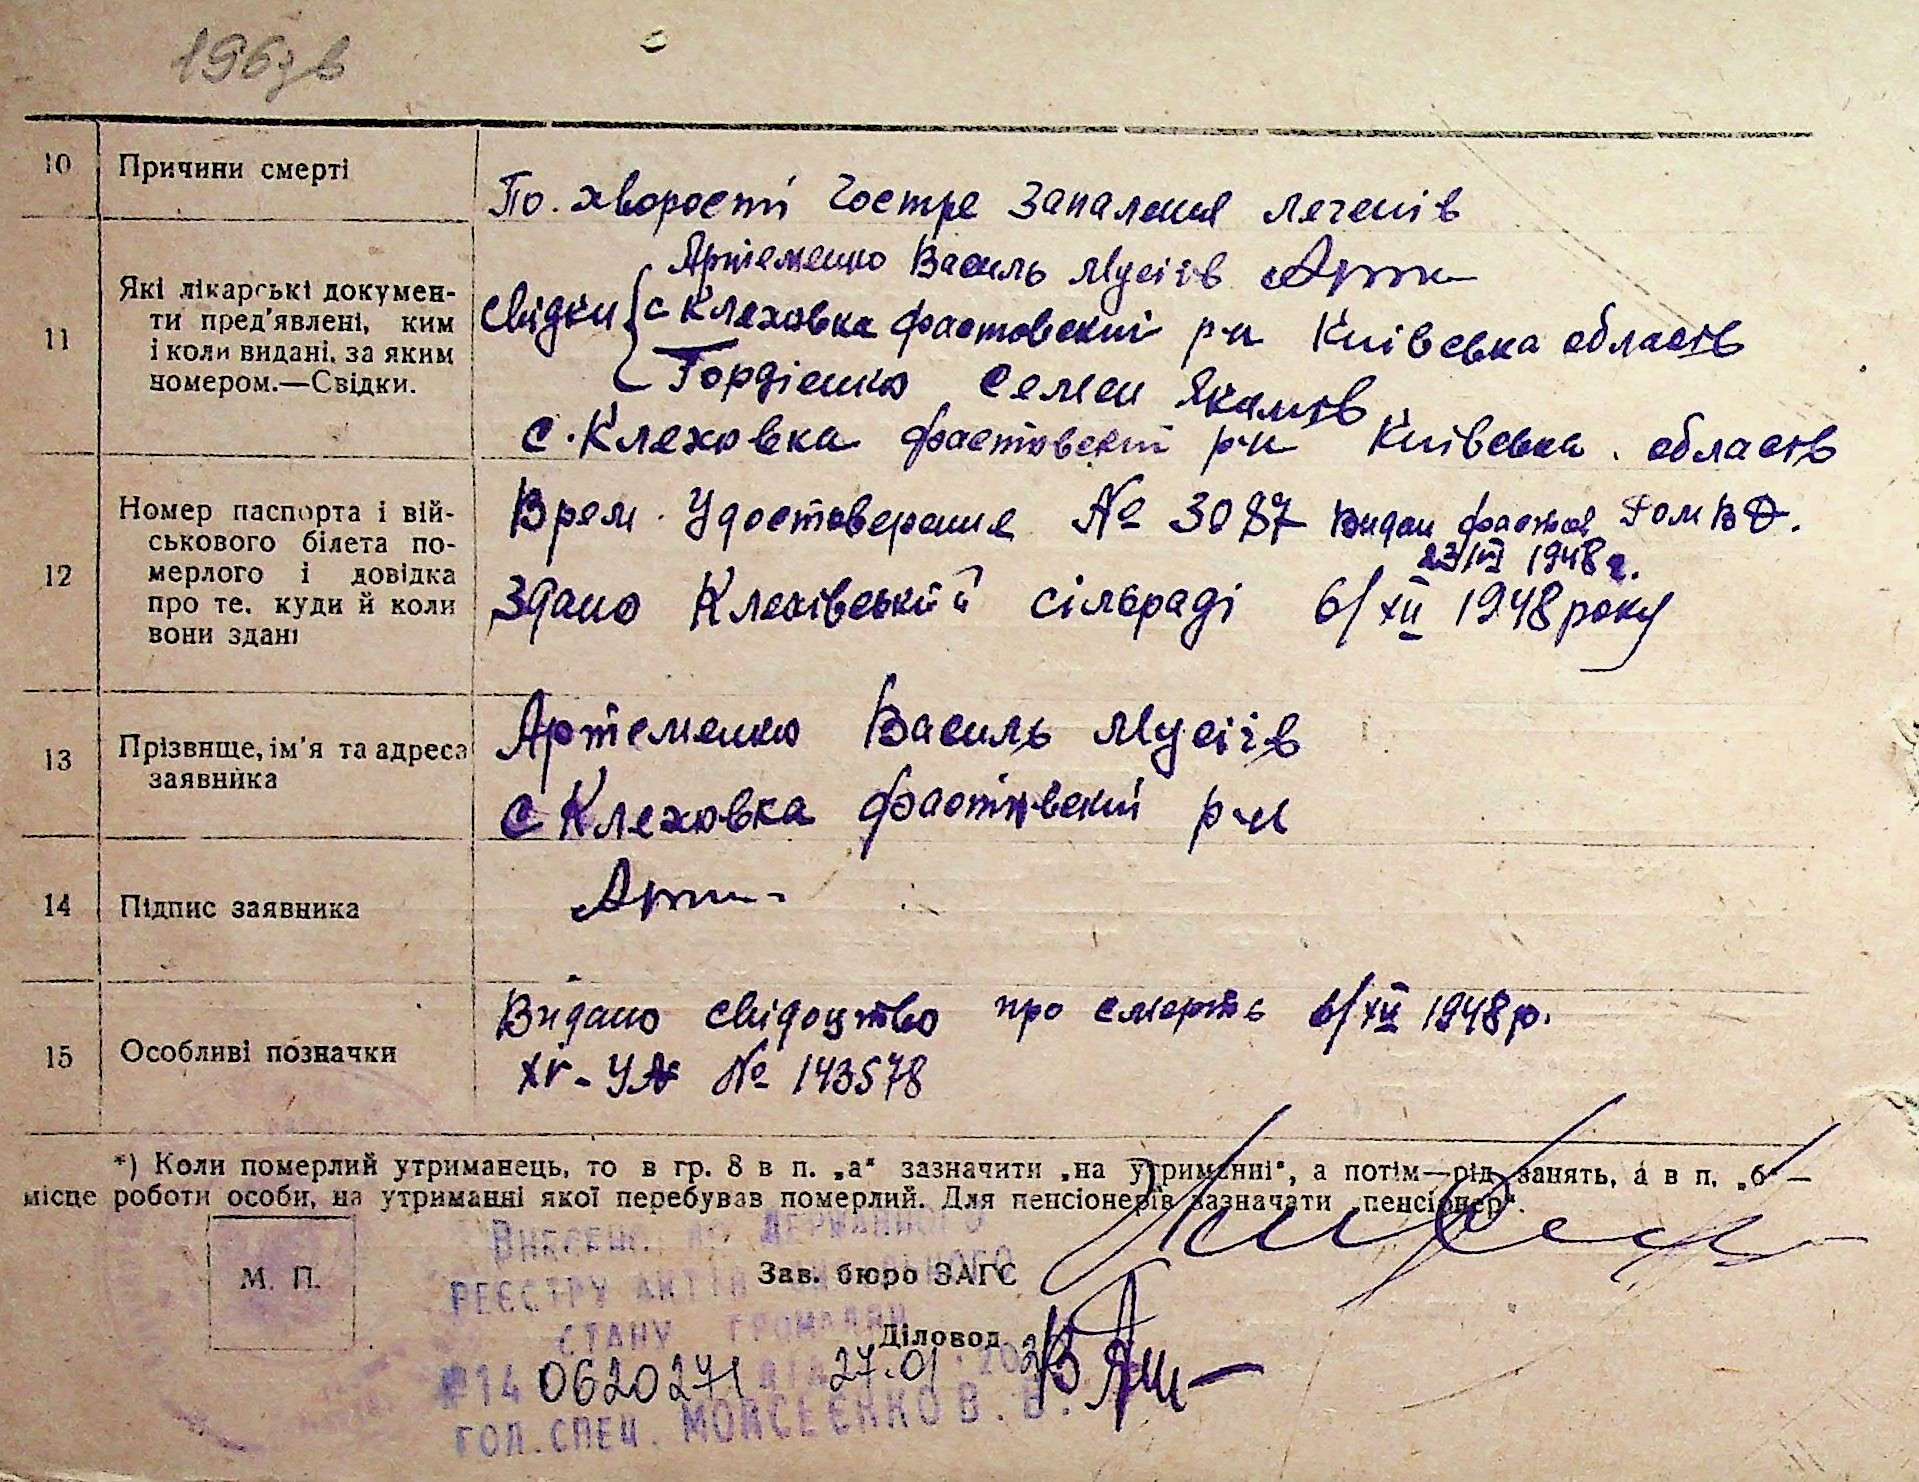 196зв
10 Причини смерті
По. хворості гостре запаленя легенів
11 Які лікарські докумен-
ти пред'явлені, ким
і коли видані, за яким
номером.—Свідки.
Свідки
Артеменко Василь Мусіів
с Клеховка фастовский р-н Киівська область
Гордіенко Семен Якамів
с. Клеховка фастовский р-н Киівська область
12 Номер паспорта і вій-
ськового білета по-
мерлого і довідка
про те, куди й коли
вони здані
Врем. Удостоверение № 3087 видан РОМВД.
23/VI 1948 г.
Здано Клехівській сільраді 6/XII 1948 року
13 Прізвище, ім'я та адреса
заявника
Артеменко Василь Мусіів
с Клеховка фастівский р-н
14 Підпис заявника
15 Особливі позначки
Видано свідоцтво про смерть 6/XII 1948 р.
XV-УА № 143578
*) Коли померлий утриманець, то в гр. 8 в п. „а" зазначити „на утриманні", а потім—рід занять, а в п. „б"—
місце роботи особи, на утриманні якої перебував померлий. Для пенсіонерів зазначати „пенсіонер".
ВНЕСЕНО ДО ДЕРЖАВНОГО
РЕЄСТРУ АКТІВ ЦИВІЛЬНОГО
СТАНУ ГРОМАДЯН
М. П.
Зав. бюро ЗАГС
Діловод
№14 0620271 27.01.
ГОЛ. СПЕЦ. МОЙСЕЄНКО В. В.